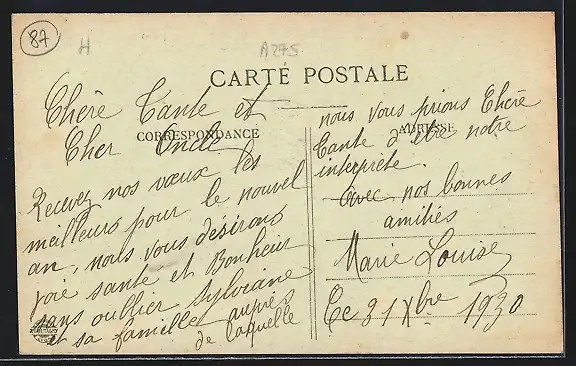 87
H
A275
CARTE POSTALE
CORRESPONDANCE
ADRESSE
Chère Tante et
Cher Oncle
Recevez nos vœux les
meilleurs pour le nouvel
an, nous vous désirons
joie santé et Bonheur
sans oublier Sylviane
et sa famille auprès
de laquelle
nous vous prions Chère
Tante d'être notre
interprète.
Avec nos bonnes
amitiés
Marie Louise
Ce 31 Xbre 1930